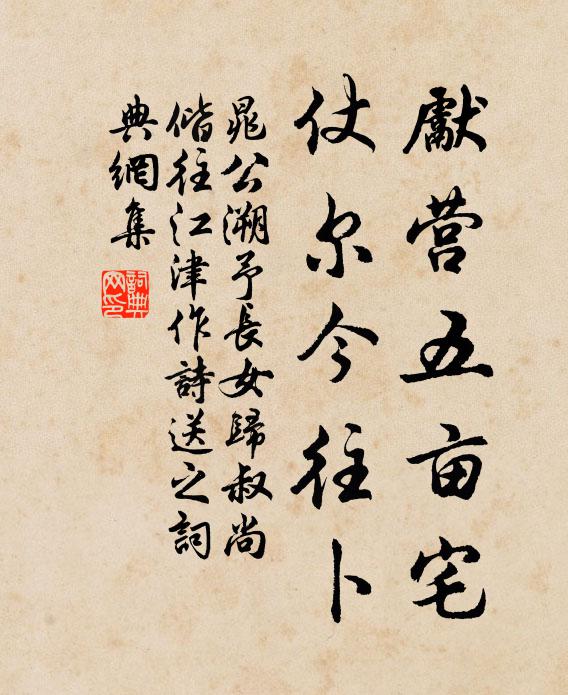 獻营五亩宅
仗尔今往卜
晁公溯予長女歸叔尚
偕往江津作詩送之詞
典網集
詞典
网印